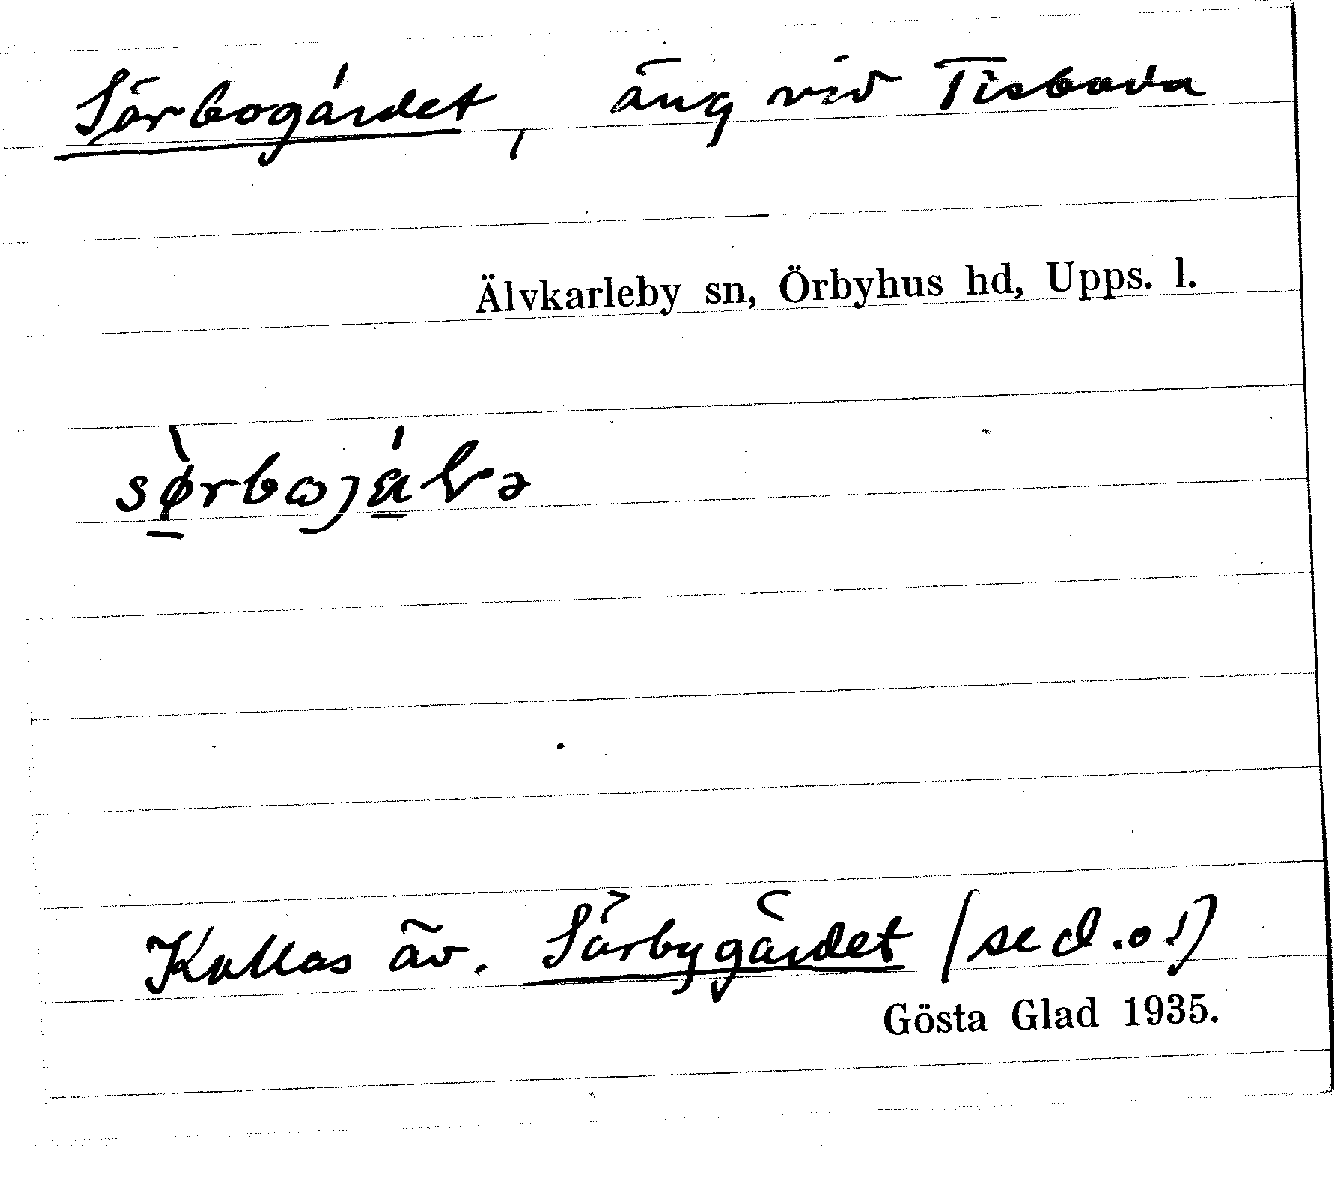 Sörbogärdet, äng vid Tisboda
Älvkarleby sn, Örbyhus hd, Upps. l.
Kallas äv. Sörbygärdet (se d.o!)
Gösta Glad 1935.